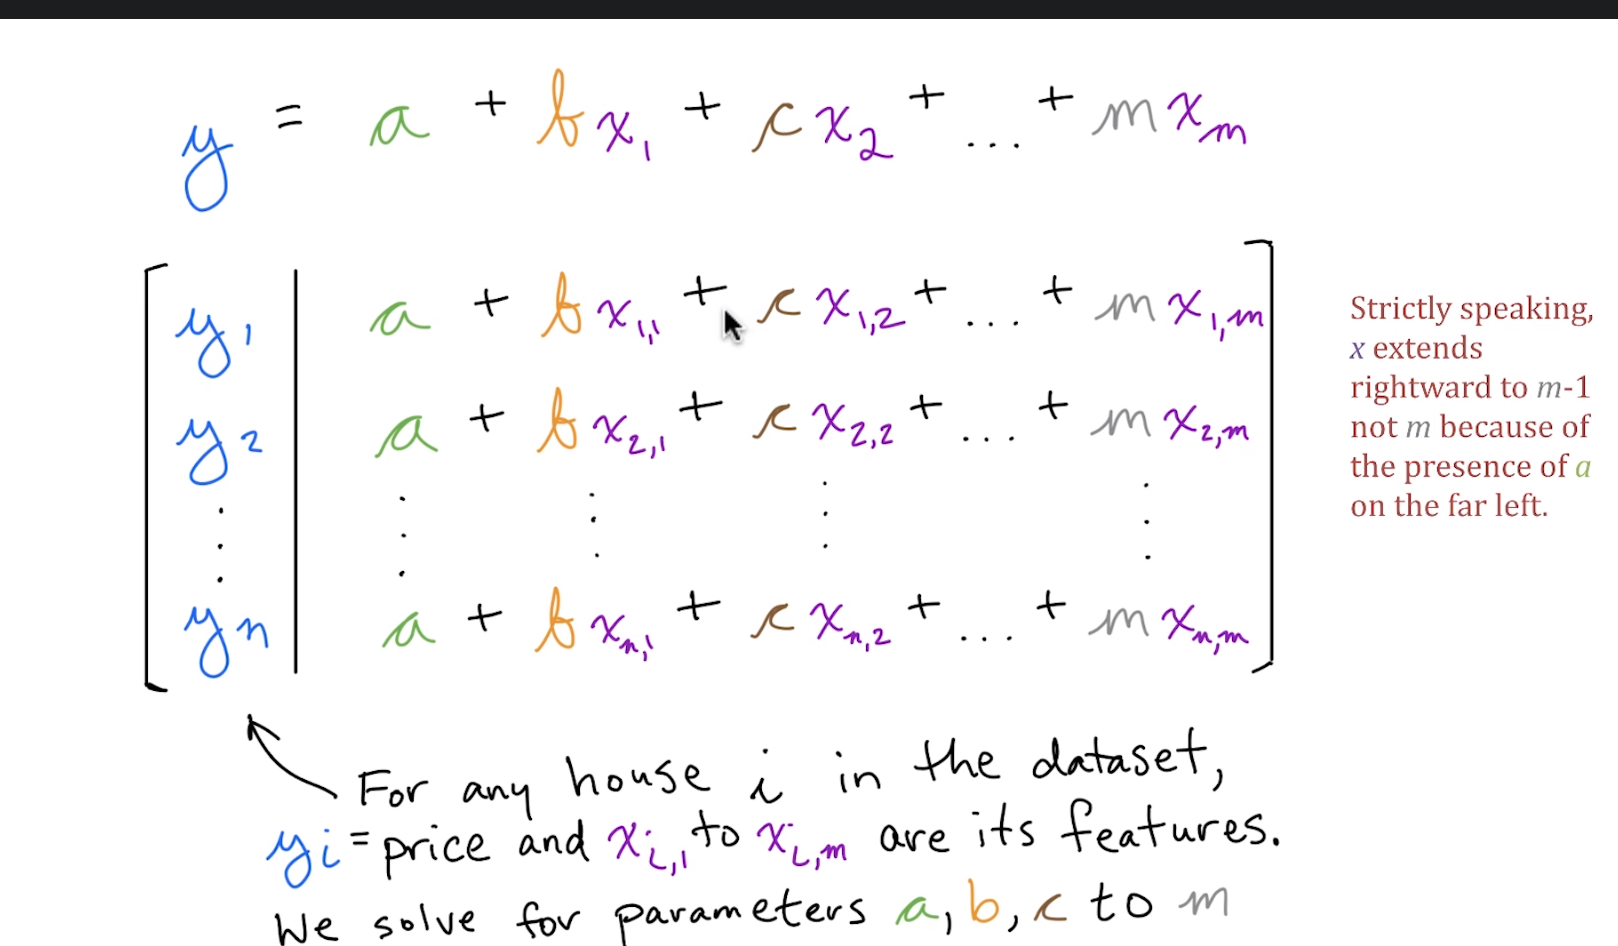 y = a + bx₁ + cx₂ + ... + mxₘ
y₁ | a + bx₁,₁ + cx₁,₂ + ... + mx₁,ₘ
y₂ | a + bx₂,₁ + cx₂,₂ + ... + mx₂,ₘ
⋮ ⋮ ⋮ ⋮ ⋮
yₙ | a + bxₙ,₁ + cxₙ,₂ + ... + mxₙ,ₘ
Strictly speaking,
x extends
rightward to m-1
not m because of
the presence of a
on the far left.
For any house i in the dataset,
yi = price and xᵢ,₁ to xᵢ,ₘ are its features.
We solve for parameters a, b, c to m